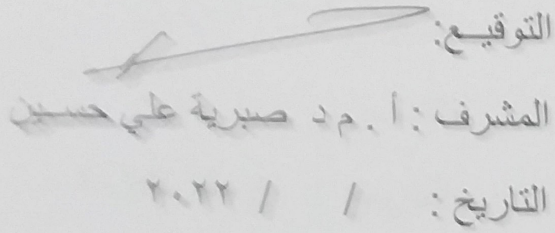 التوقيع:
المشرف : أ . م د صبرية علي حسين
التاريخ : / / ٢٠٢٢